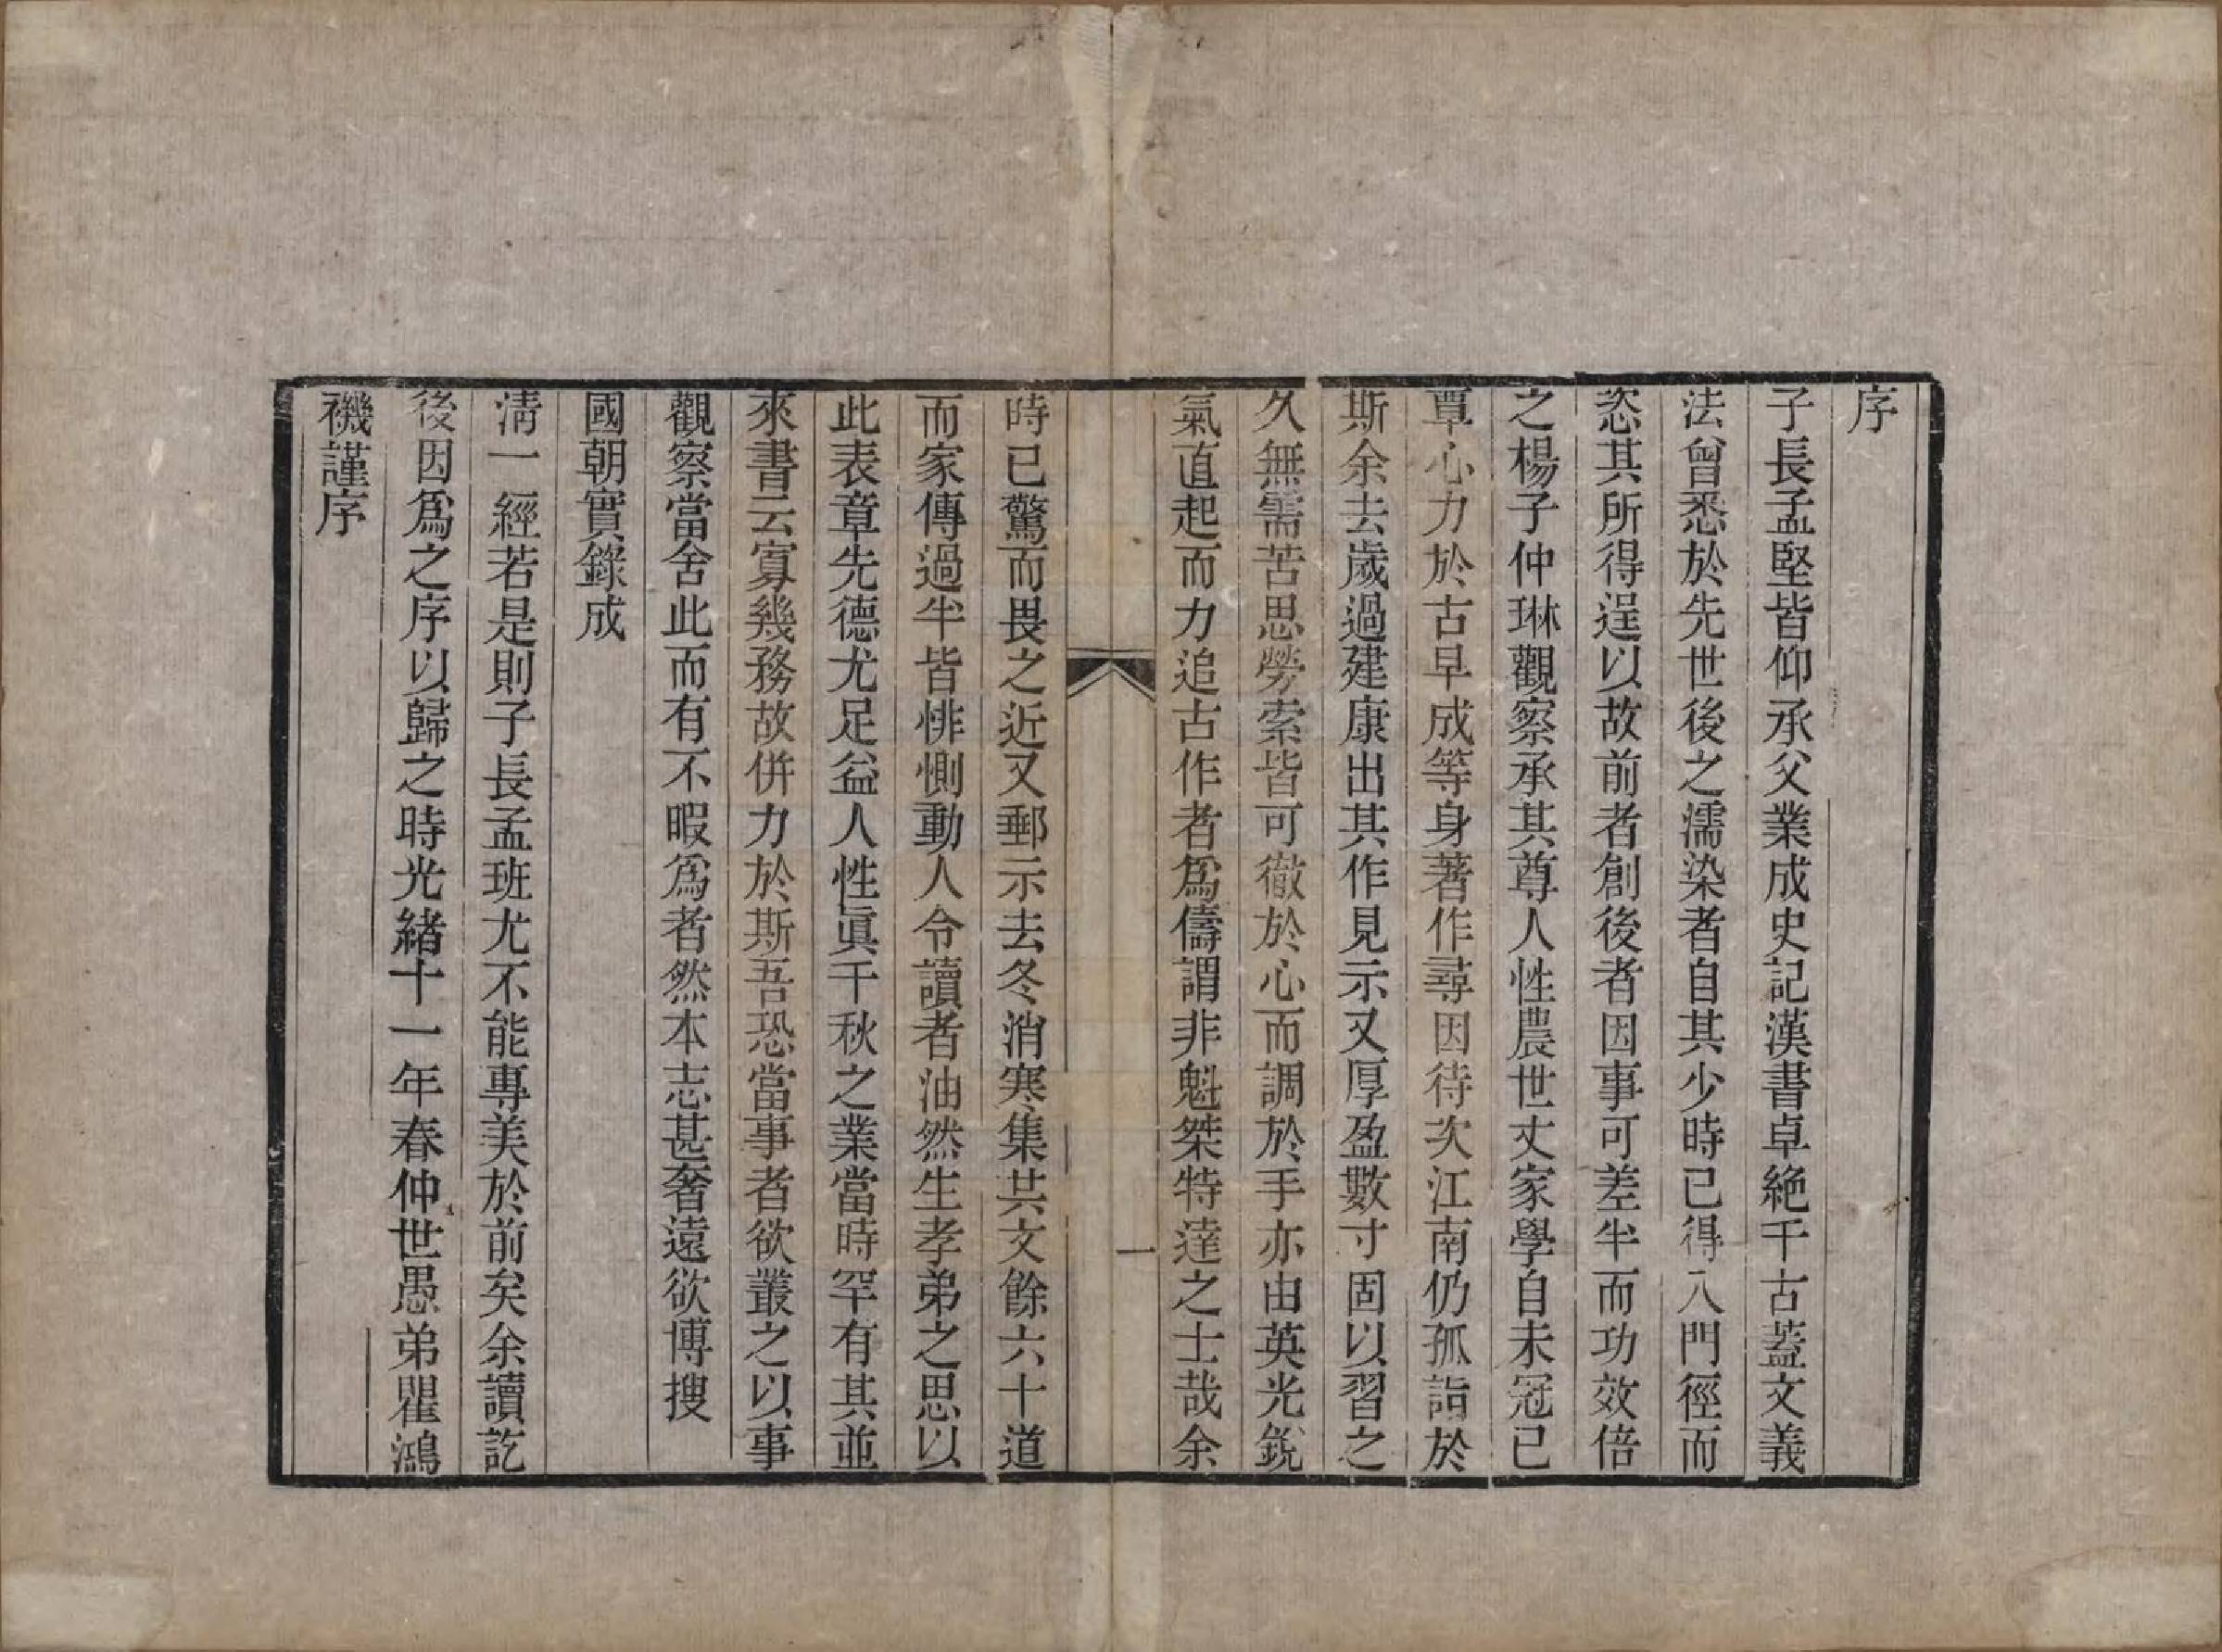 序
子長孟堅皆仰承父業成史記漢書卓絶千古蓋文義
法曾悉於先世後之濡染者自其少時已得入門徑而
恣其所得逞以故前者創後者因事可差半而功效倍
之楊子仲琳觀察承其尊人性農世丈家學自未冠已
覃心力於古早成等身著作尋因待次江南仍孤詣於
斯余去歲過建康出其作見示又厚盈數寸固以習之
久無需苦思勞索皆可徹於心而調於手亦由英光銳
氣直起而力追古作者爲儔謂非魁桀特達之士哉余
一
時已驚而畏之近又郵示去冬消寒集其文餘六十道
而家傳過半皆悱惻動人令讀者油然生孝弟之思以
此表章先德尤足益人性眞千秋之業當時罕有其並
來書云寡幾務故併力於斯吾恐當事者欲叢之以事
觀察當舍此而有不暇爲者然本志甚奢遠欲博搜
國朝實錄成
淸一經若是則子長孟班尤不能專美於前矣余讀訖
後因爲之序以歸之時光緒十一年春仲世愚弟瞿鴻
禨謹序